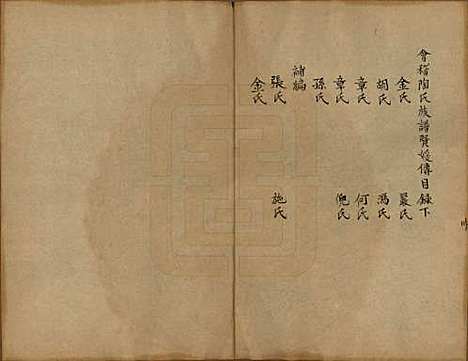 會稽陶氏族譜賢媛傳目錄下
金氏 嚴氏
胡氏 馮氏
章氏 何氏
章氏 倪氏
孫氏
補編
張氏 施氏
金氏